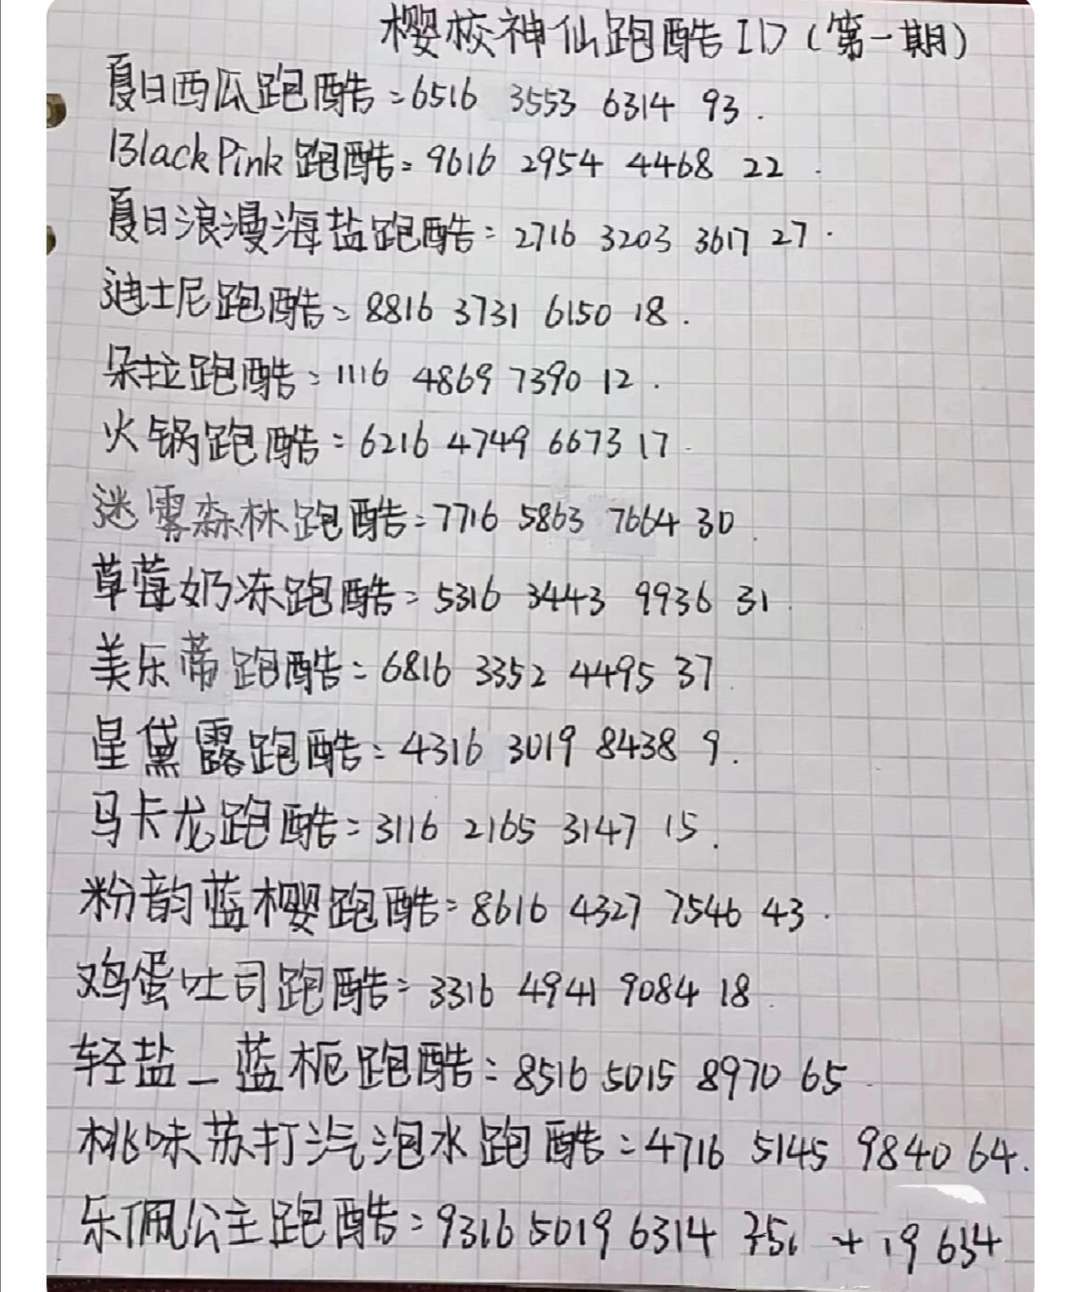 樱校神仙跑酷ID（第一期）
夏日西瓜跑酷：6516 3553 6314 93.
BlackPink跑酷：9616 2954 4468 22.
夏日浪漫海盐跑酷：2716 3203 3617 27.
迪士尼跑酷：8816 3731 6150 18.
朵拉跑酷：1116 4869 7390 12.
火锅跑酷：6216 4749 6673 17.
迷雾森林跑酷：7716 5863 7664 30.
草莓奶冻跑酷：5316 3443 9936 31.
美乐蒂跑酷：6816 3352 4495 37.
星黛露跑酷：4316 3019 8438 9.
马卡龙跑酷：3116 2165 3147 15.
粉韵蓝樱跑酷：8616 4327 7546 43.
鸡蛋吐司跑酷：3316 4941 9084 18
轻盐_蓝栀跑酷：8516 5015 8970 65
桃味苏打汽泡水跑酷：4716 5145 9840 64.
乐佩公主跑酷：9316 5019 6314 + 19 634